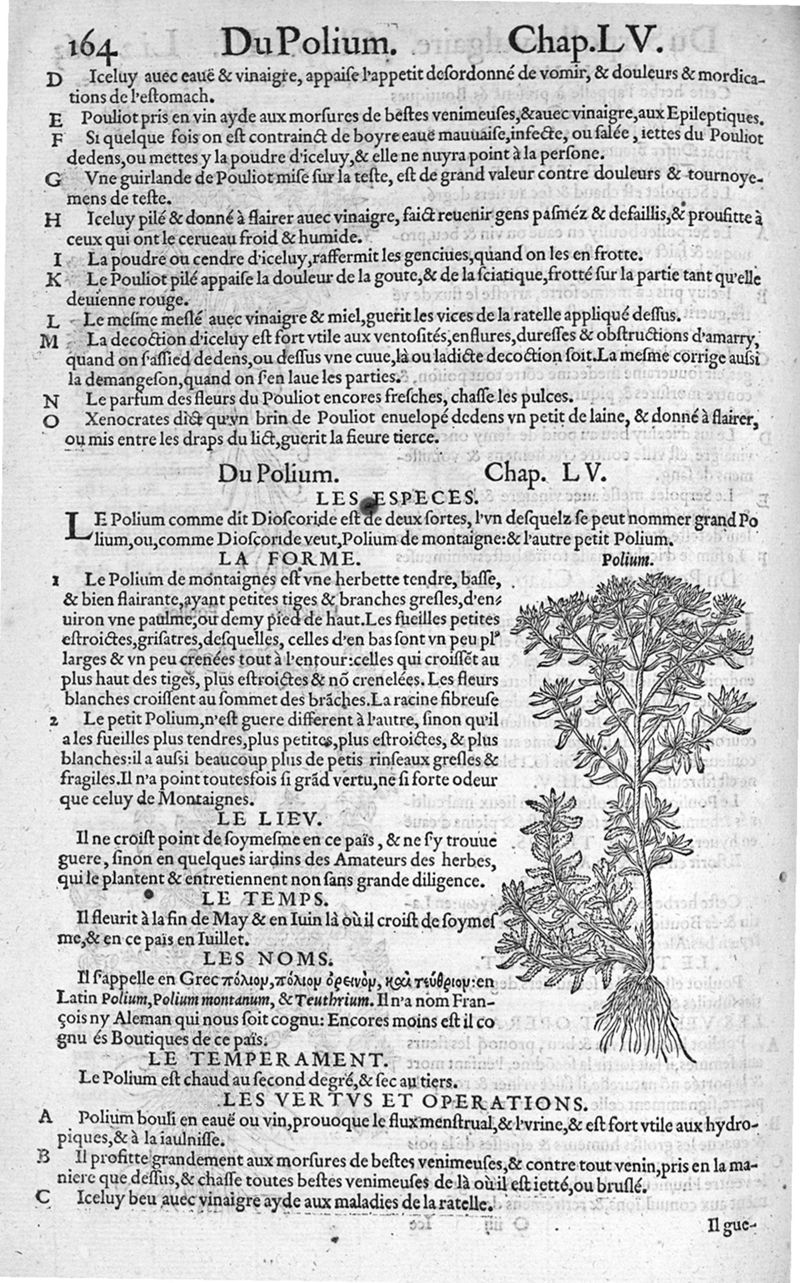 164 Du Polium. Chap. LV.
D Iceluy auec eauë & vinaigre, appaiſe l'appetit deſordonné de vomir, & douleurs & mordica-
tions de l'eſtomach.
E Pouliot pris en vin ayde aux morſures de beſtes venimeuſes, & auec vinaigre, aux Epileptiques.
F Si quelque fois on eſt contrainct de boyre eauë mauuaiſe, infecte, ou ſalée, iettes du Pouliot
dedens, ou mettes y la poudre d'iceluy, & elle ne nuyra point à la perſone.
G Vne guirlande de Pouliot miſe ſur la teſte, eſt de grand valeur contre douleurs & tournoye-
mens de teſte.
H Iceluy pilé & donné à flairer auec vinaigre, faict reuenir gens paſméz & defaillis, & proufitte à
ceux qui ont le cerueau froid & humide.
I La poudre ou cendre d'iceluy, raffermit les genciues, quand on les en frotte.
K Le Pouliot pilé appaiſe la douleur de la goute, & de la ſciatique, frotté ſur la partie tant qu'elle
deuienne rouge.
L Le meſme meſlé auec vinaigre & miel, guerit les vices de la ratelle appliqué deſſus.
M La decoction d'iceluy eſt fort vtile aux ventoſités, enflures, dureſſes & obſtructions d'amarry,
quand on ſ'aſſied dedens, ou deſſus vne cuue, là ou ladicte decoction ſoit. La meſme corrige auſſi
la demangeſon, quand on ſ'en laue les parties.
N Le parfum des fleurs du Pouliot encores freſches, chaſſe les pulces.
O Xenocrates dict qu'vn brin de Pouliot enuelopé dedens vn petit de laine, & donné à flairer,
ou mis entre les draps du lict, guerit la fieure tierce.
Du Polium. Chap. LV.
LES ESPECES.
LE Polium comme dit Dioſcoride eſt de deux ſortes, l'vn deſquelz ſe peut nommer grand Po
lium, ou, comme Dioſcoride veut, Polium de montaigne: & l'autre petit Polium.
LA FORME.
Polium.
1 Le Polium de montaignes eſt vne herbette tendre, baſſe,
& bien flairante, ayant petites tiges & branches greſles, d'en-
uiron vne paulme, ou demy pied de haut. Les fueilles petites
eſtroictes, griſatres, deſquelles, celles d'en bas ſont vn peu pl⁹
larges & vn peu crenées tout à l'entour: celles qui croiſſēt au
plus haut des tiges, plus eſtroictes & nō crenelées. Les fleurs
blanches croiſſent au ſommet des brāches. La racine fibreuſe
2 Le petit Polium, n'eſt guere different à l'autre, ſinon qu'il
a les fueilles plus tendres, plus petites, plus eſtroictes, & plus
blanches: il a auſſi beaucoup plus de petis rinſeaux greſles &
fragiles. Il n'a point toutesfois ſi grād vertu, ne ſi forte odeur
que celuy de Montaignes.
LE LIEV.
Il ne croiſt point de ſoymeſme en ce païs, & ne ſ'y trouue
guere, ſinon en quelques iardins des Amateurs des herbes,
qui le plantent & entretiennent non ſans grande diligence.
LE TEMPS.
Il fleurit à la fin de May & en Iuin là où il croiſt de ſoymeſ
me, & en ce païs en Iuillet.
LES NOMS.
Il ſ'appelle en Grec πόλιον, πόλιον ὀρεινὸν, καὶ τεύθριον: en
Latin Polium, Polium montanum, & Teuthrium. Il n'a nom Fran-
çois ny Aleman qui nous ſoit cognu: Encores moins eſt il co
gnu és Boutiques de ce païs.
LE TEMPERAMENT.
Le Polium eſt chaud au ſecond degré, & ſec au tiers.
LES VERTVS ET OPERATIONS.
A Polium bouli en eauë ou vin, prouoque le flux menſtrual, & l'vrine, & eſt fort vtile aux hydro-
piques, & à la iaulniſſe.
B Il profitte grandement aux morſures de beſtes venimeuſes, & contre tout venin, pris en la ma-
niere que deſſus, & chaſſe toutes beſtes venimeuſes de là où il eſt ietté, ou bruſlé.
C Iceluy beu auec vinaigre ayde aux maladies de la ratelle.
Il gue-